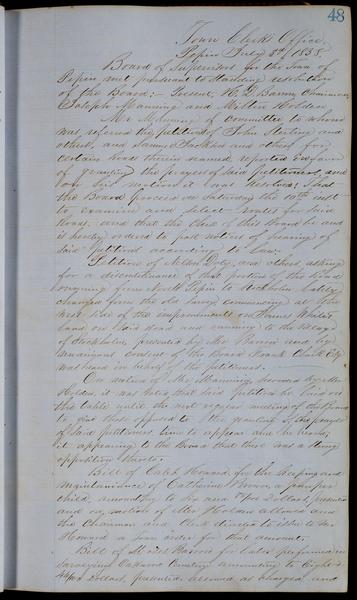 48
Town Clerk's Office
Pepin July 8th 1858.
Board of Supervisors for the Town of
Pepin met pursuant to standing resolution
of the Board:- Present, H. D. Barron Chairman,
Joseph Manning and Milton Holden.
Mr Manning of committee to whom
was referred the petition of John Sterling and
others, and Samuel and others for
certain roads therein named, reported in favor
of granting the prayers of said petitioners, and
on his motion it was Resolved; That
the Board proceed on Saturday the 10th inst
to examine and select routes for said
Roads, and that the Clerk of this Board be and
is hereby ordered to post notices of hearing of
said petitions according to law.
Petition of Nelson Doty, and others, asking
for a discontinuance of that portion of the Road
running from North Pepin to Stockholm lately
changed from the old survey commencing at the
west side of the improvements on James White's
land on said road and running to the village
of Stockholm, presented by Mr Barron and by
unanimous consent of the Board Frank Clark Esq
was heard in behalf of the petitioners.
On motion of Mr Manning, seconded by Mr
Holden, it was voted that said petition be laid on
the table until the next regular meeting of the Board
to give those opposed to the granting of the prayer
of said petitioners time to appear and be heard,
it appearing to the Board that there was a strong
opposition thereto.
Bill of Caleb Howard, for the keeping and
maintainance of Catherine Brown, a pauper
child, amounting to six and Dollars, presented
and on motion of Mr Holden allowed and
the Chairman and Clerk directed to issue to Mr
Howard a Town order for that amount.
Bill of Miles for labor performed in
surveying Oakwood Cemetery amounting to Eight &
Dollars, presented, allowed as charged, and